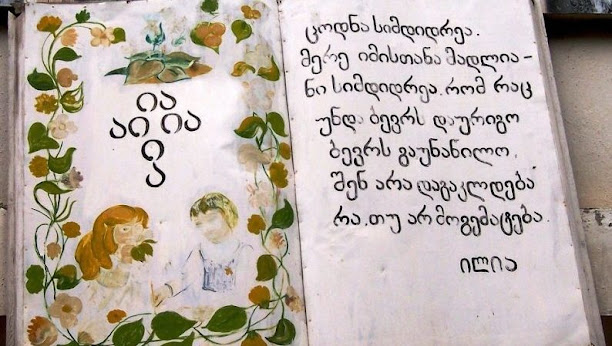 ია
აი ია
ი
ა
ცოდნა სიმდიდრეა.
მერე იმისთანა მადლია –
ნი სიმდიდრეა. რომ რაც
უნდა ბევრს დაურიგო
ბევრს გაუნაწილო.
შენ არა დაგაკლდება
რა, თუ არ მოგემატება.
ილია